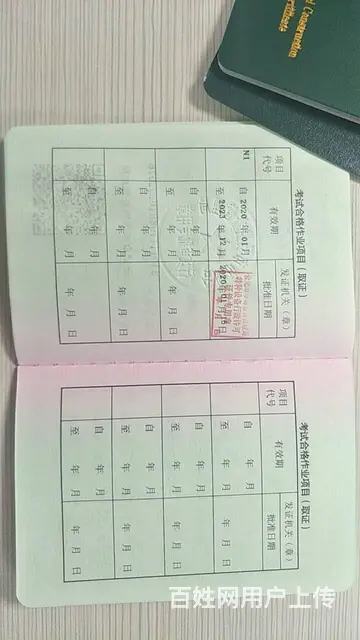 考试合格作业项目（取证）
项目
代号
有效期
发证机关（章）
批准日期
N1
自 2020 年 01 月
至 2023 年 12 月
特种设备行政许可
自 年 月
至 年 月
年 月 日
自 年 月
至 年 月
年 月 日
自 年 月
至 年 月
年 月 日
考试合格作业项目（取证）
项目
代号
有效期
发证机关（章）
批准日期
自 年 月
至 年 月
年 月 日
自 年 月
至 年 月
年 月 日
自 年 月
至 年 月
年 月 日
自 年 月
至 年 月
年 月 日
Conservation
百姓网用户上传